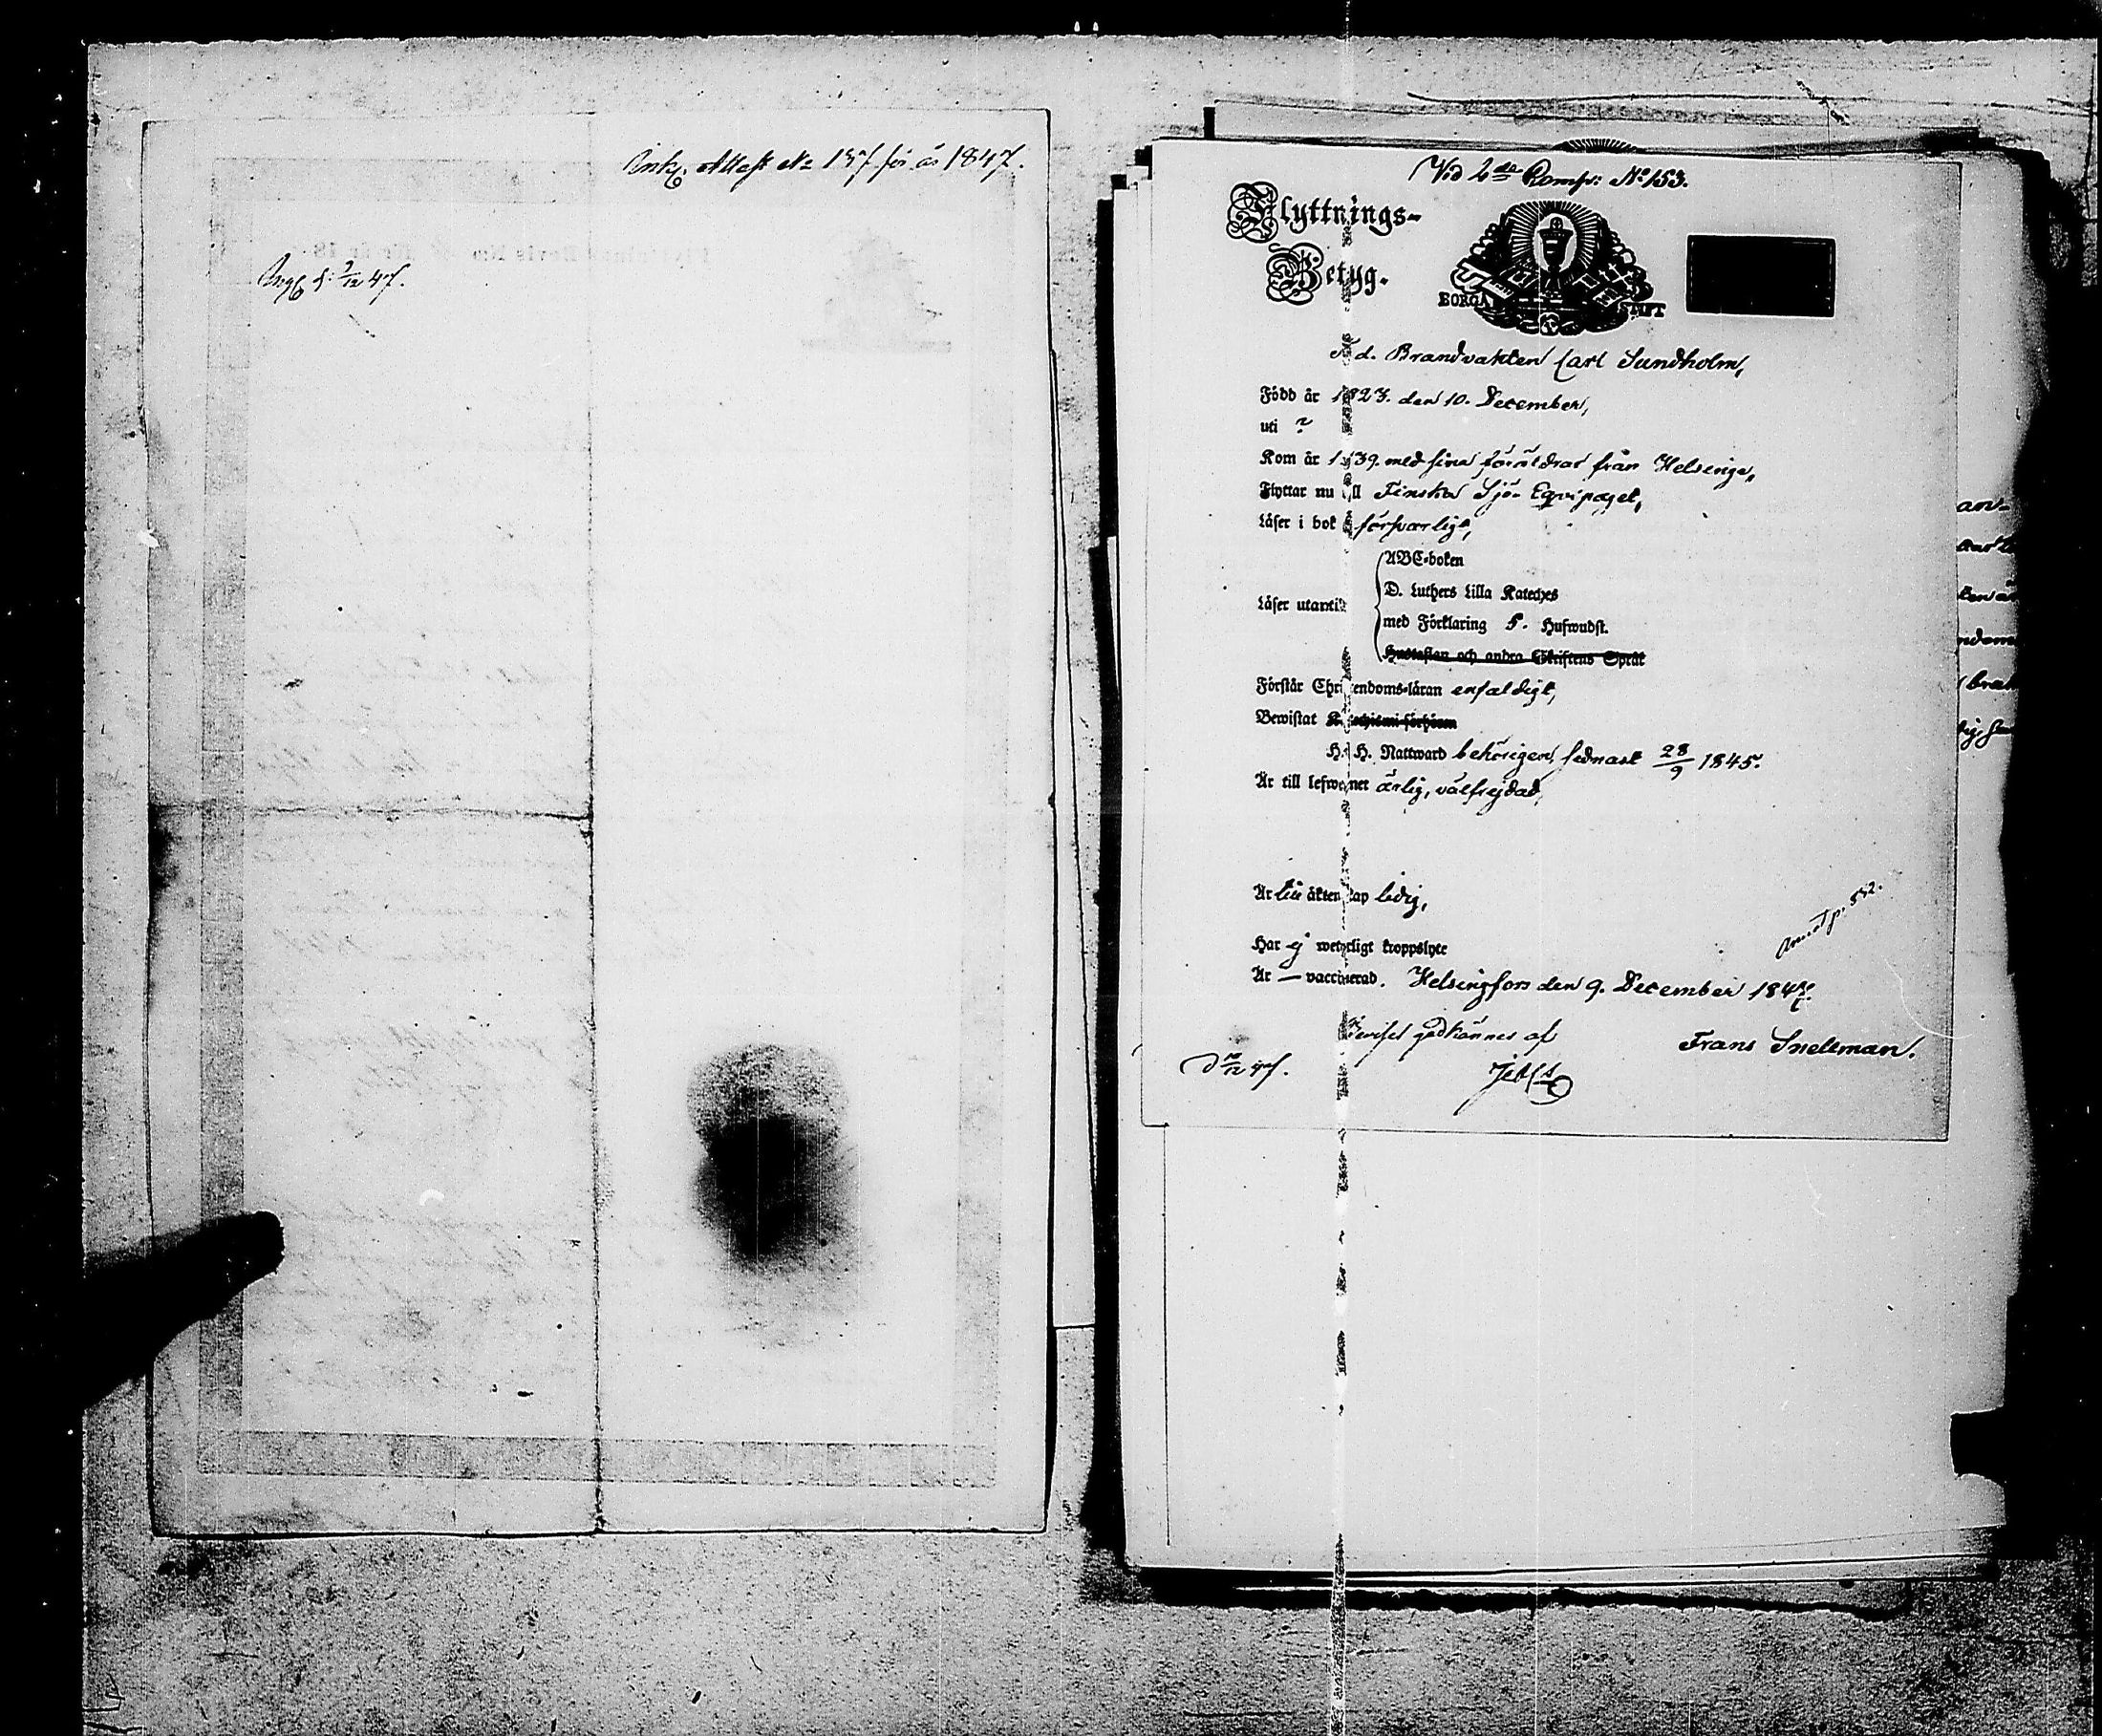 Ank. Attest No 157 för år 1847.
Vid 2de Komp: No 153.
Flyttnings-
Betyg.
BORGÅ STIFT
F. d. Brandvakten Carl Sundholm,
Född år 1823. den 10. December,
uti ?
Kom år 1839. med sina föräldrar från Helsinge,
Flyttar nu till Finska Sjö-Eqvipaget,
Läser i bok försvarligt,
ABC-boken
D. Luthers Lilla Kateches
Läser utantill
med Förklaring 5. Hufwudst.
Hustaflan och andra Skriftens Språk
Förstår Christendoms-läran enfaldigt,
Bewistat Katechismi-förhören
H. H. Nattward behörigen, sednast 28/9 1845.
Är till lefwernet ärlig, välfrejdad,
Är till äktenskap ledig,
Har ej weterligt kroppslyte
Är — vaccinerad. Helsingfors den 9. December 1847.
Beviset godkännes af
Frans Snellman.